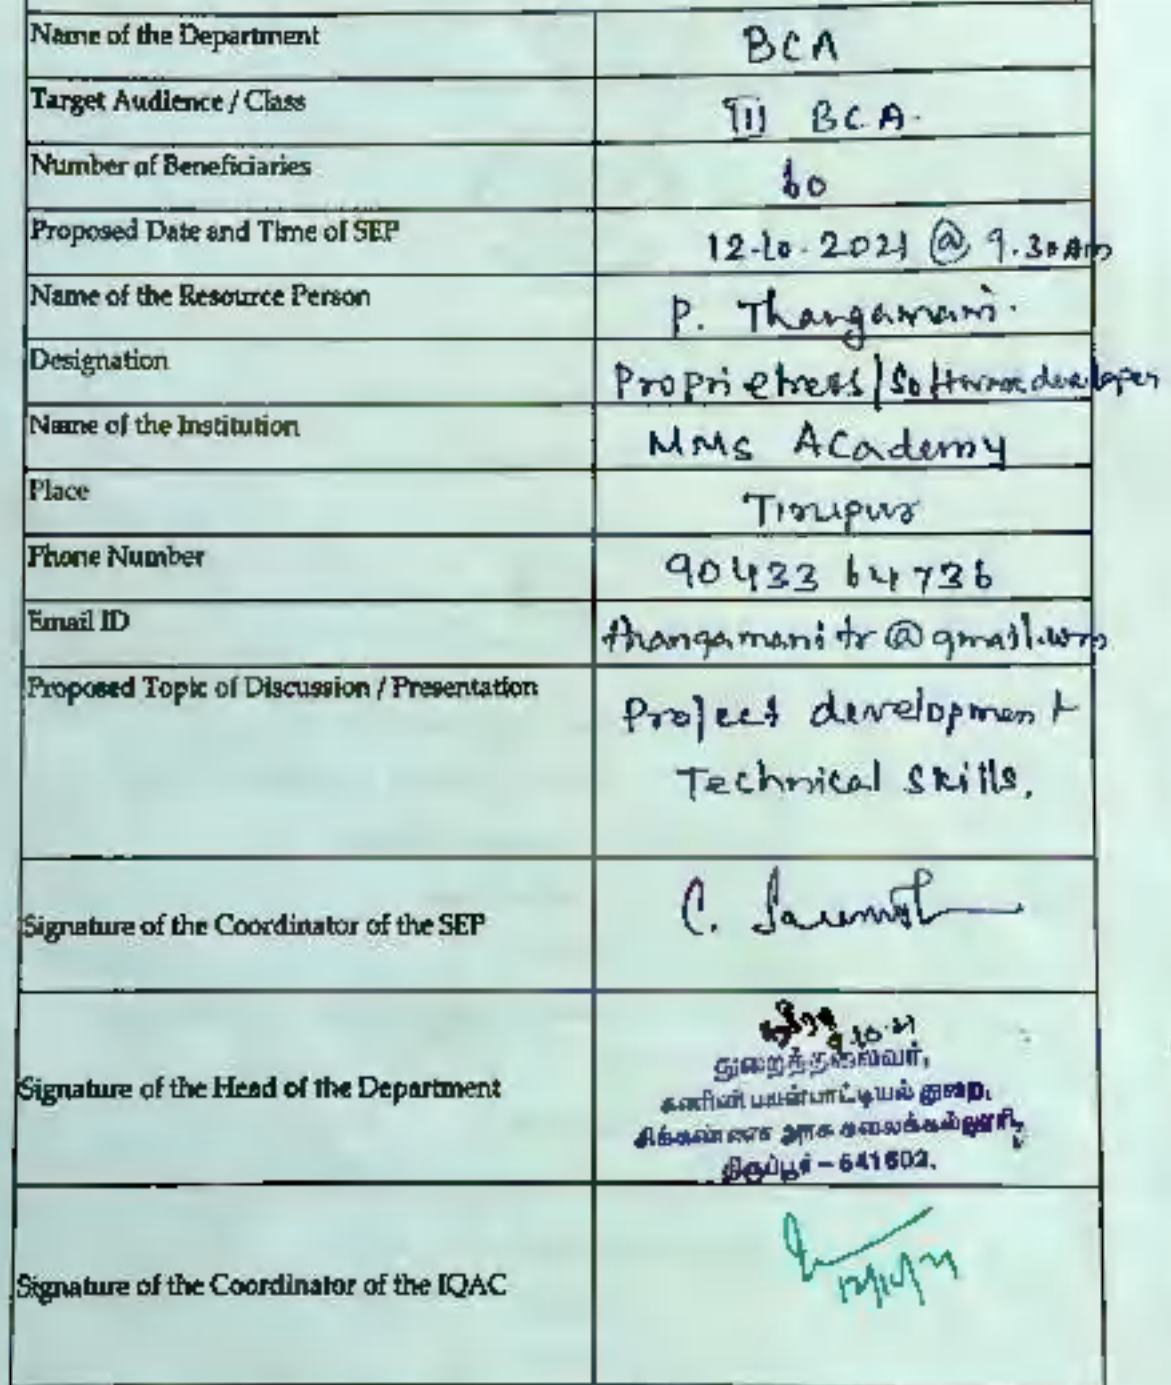 Name of the Department BCA
Target Audience / Class III BCA.
Number of Beneficiaries 60
Proposed Date and Time of SEP 12-10-2021 @ 9.30 AM
Name of the Resource Person P. Thangamani.
Designation Proprietress / Software developer
Name of the Institution MMS Academy
Place Tirupur
Phone Number 90433 64736
Email ID thangamanitr@gmail.com
Proposed Topic of Discussion / Presentation Project development
Technical skills.
Signature of the Coordinator of the SEP C.
Signature of the Head of the Department
9.10.21
துறைத்தலைவர்,
கணினி பயன்பாட்டியல் துறை,
சிக்கண்ணா அரசு கலைக்கல்லூரி,
திருப்பூர் – 641602.
Signature of the Coordinator of the IQAC